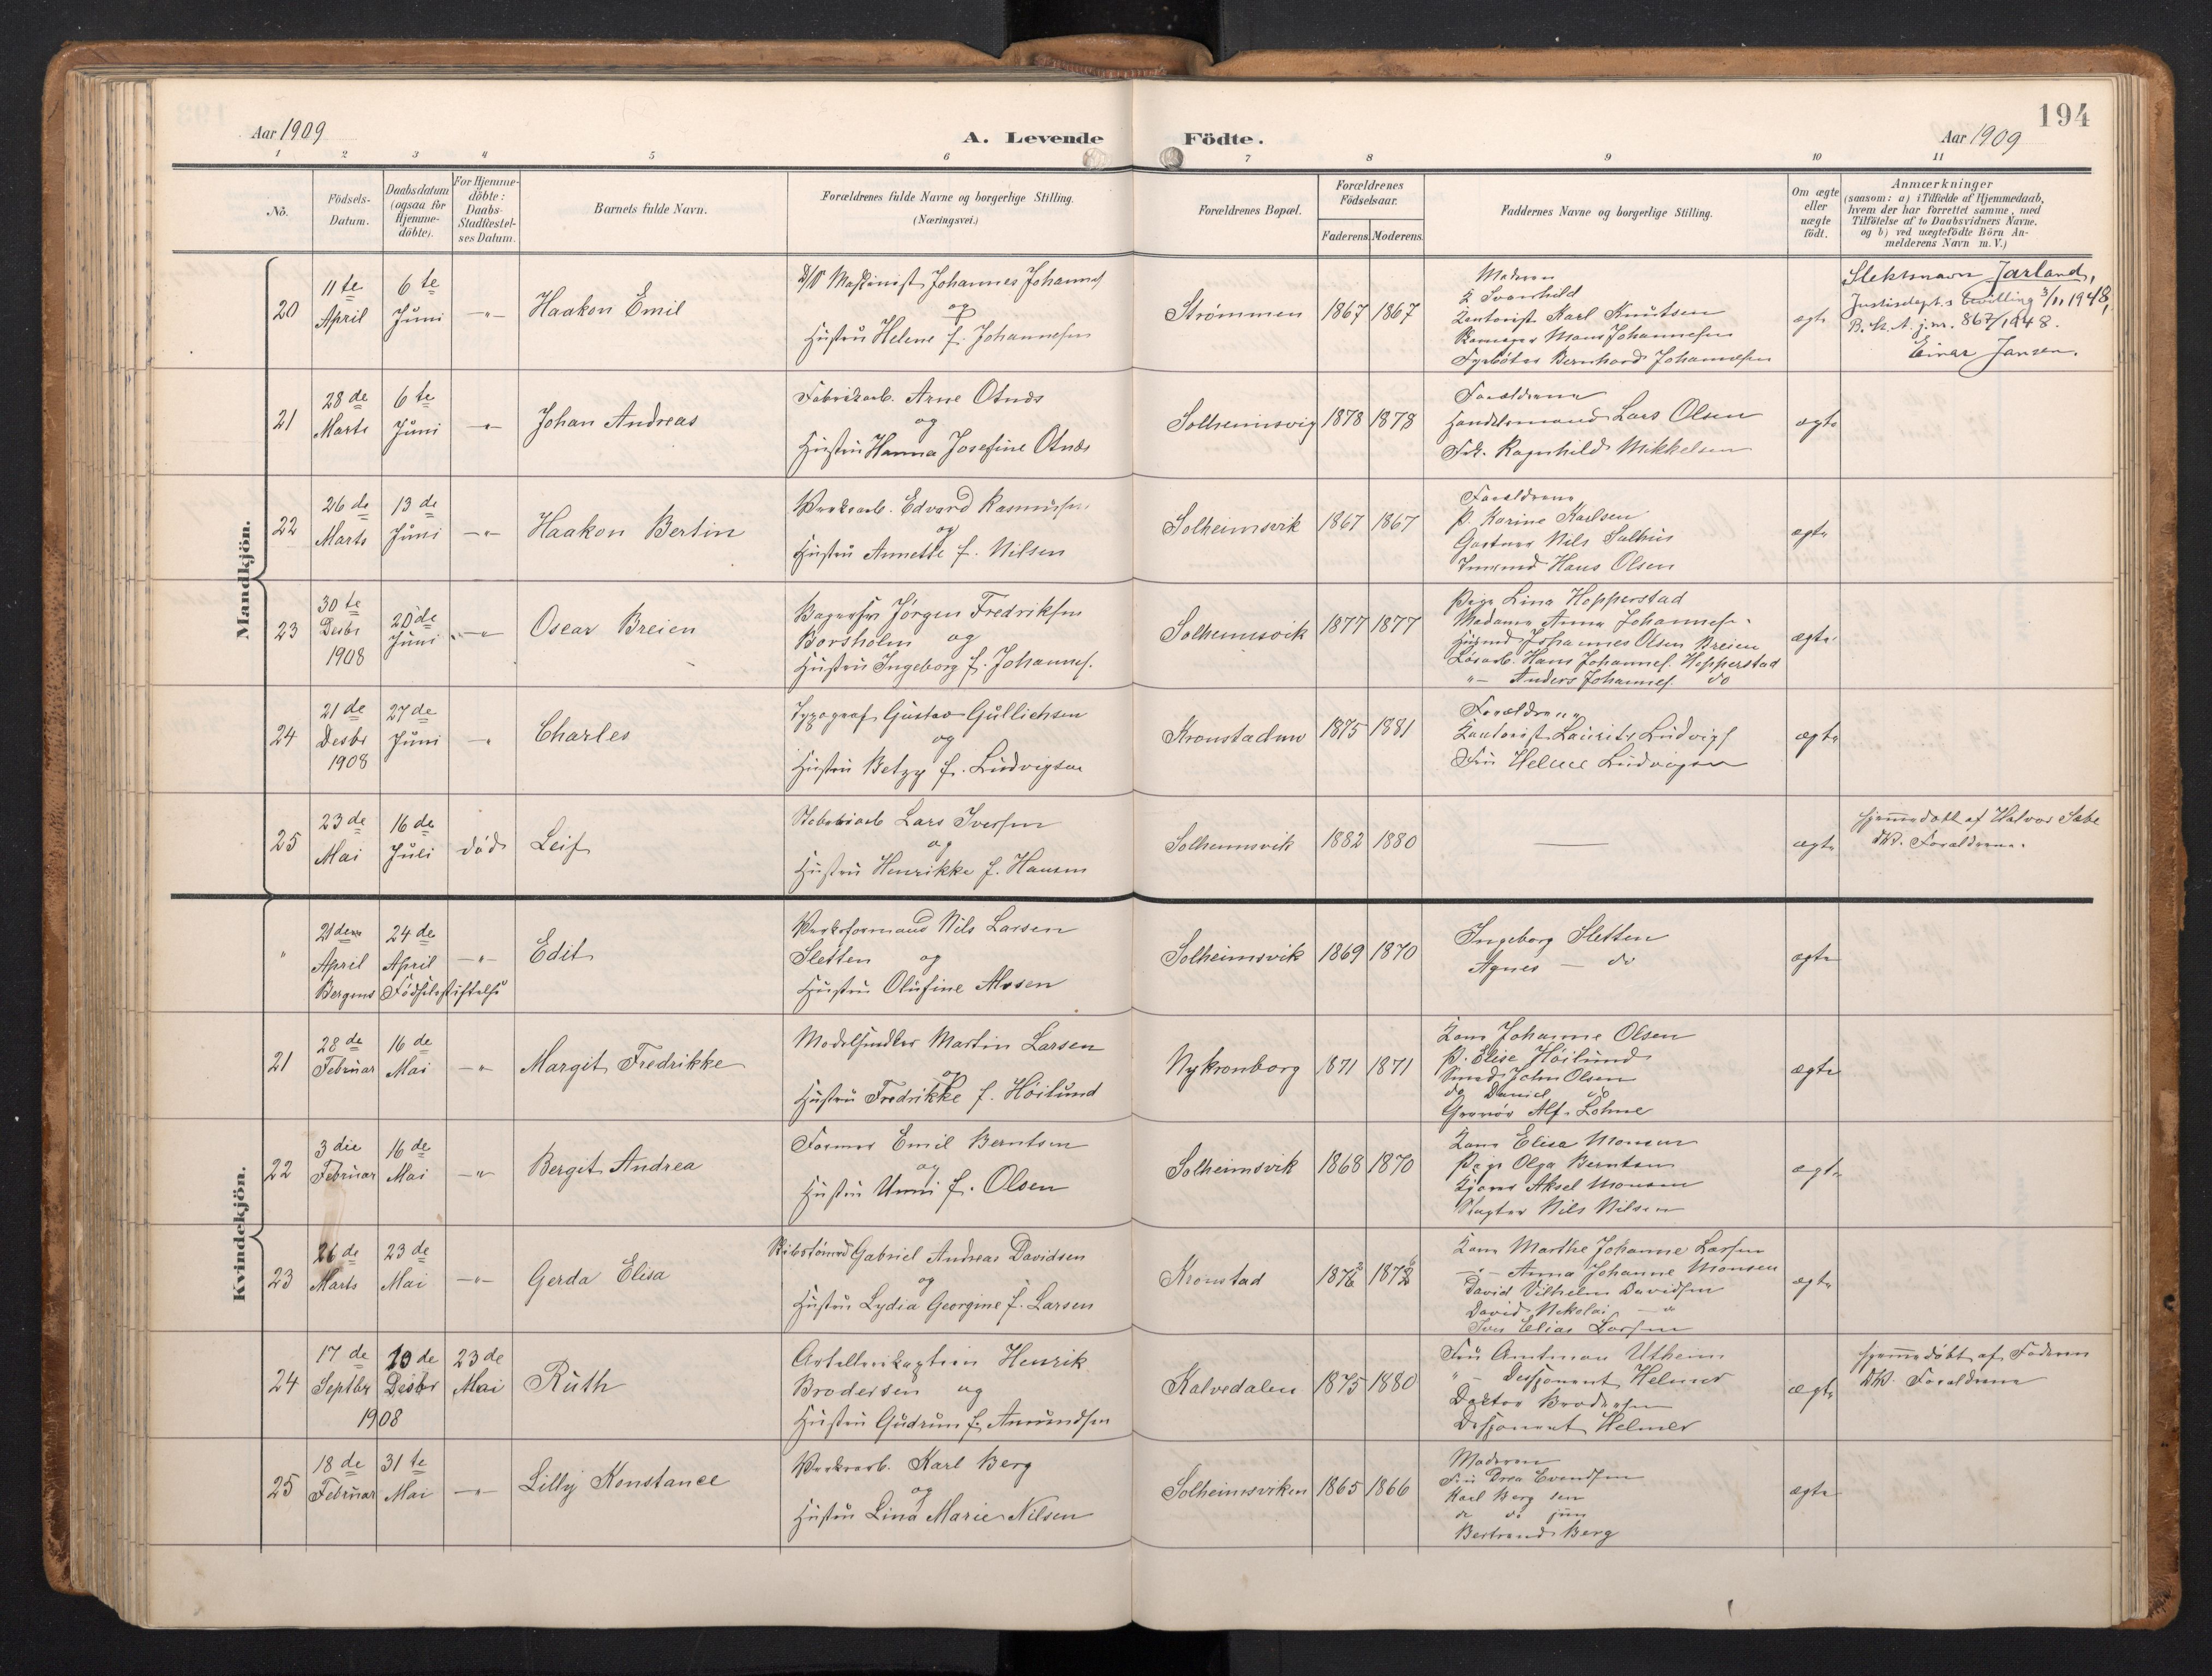 194
Aar 1909
A. Levende Födte.
Aar 1909
1 2 3 4 5 6 7 8 9 10 11
No.
Födsels-Datum.
Daabsdatum (ogsaa for Hjemme-döbte).
For Hjemme-döbte: Daabs-Stadfæstel-ses Datum.
Barnets fulde Navn.
Forældrenes fulde Navne og borgerlige Stilling.
(Næringsvei.)
Forældrenes Bopæl.
Forældrenes Födselsaar.
Faderens. Moderens.
Faddernes Navne og borgerlige Stilling.
Om ægte eller uægte födt.
Anmærkninger
(saasom: a) i Tilfælde af Hjemmedaab,
hvem der har forrettet samme, med
Tilföielse af to Daabsvidners Navne.
og b) ved uægtefödte Börn An-
melderens Navn m. V.)
Mandkjön.
20
11te April
6te Juni
-"-
Haakon Emil
D/S Maskinist Johannes Johannes
og
Hustru Helene f. Johannesen
Strømmen
1867 1867
Moderen
Svanhild
Kontorist Karl Knutsen
Mons Johannesen
Fyrbøter Bernhard Johannesen
ægte
Slektsnavn Jarland,
Justisdept.s bevilling 3/11 1948,
B. St. A. j.nr. 867/1948.
Einar Jansen.
21
28de Marts
6te Juni
-"-
Johan Andreas
Fabrikarb. Arne Otnæs
og
Hustru Hanna Josefine Otnæs
Solheimsvig
1878 1878
Forældrene
Handelsmand Lars Olsen
Frk. Ragnhild Mikkelsen
ægte
22
26de Marts
13de Juni
-"-
Haakon Bertin
Verksarb. Edvard Rasmussen
og
Hustru Annette f. Nilsen
Solheimsvik
1867 1867
Forældrene
P. Karine Karlsen
Gartner Nils Salhus
Hans Olsen
ægte
23
30te Desbr 1908
20de Juni
-"-
Oscar Breien
Bagersv Jørgen Fredriksen
Borsholm og
Hustru Ingeborg f. Johannes.
Solheimsvik
1877 1877
Pige Lina Hopperstad
Madame Anna Johannes.
Johannes Olsen Breien
Løsarb. Hans Johannes. Hopperstad
"- Anders Johannes. do
ægte
24
21de Desbr 1908
27de Juni
-"
Charles
Typograf Gustav Gullichsen
og
Hustru Betzy f. Ludvigsen
Kronstadnu
1875 1881
Forældrene
Kontorist Laurits Ludvigs
Fru Helene Ludvigsen
ægte
25
23de Mai
16de Juli
død
Leif
Lars Iversen
og
Hustru Henrikke f. Hansen
Solheimsvik
1882 1880
—
ægte
hjemmedøbt af Halvor Sæbø
DV. Forældrene.
Kvindekjön.
"
21den April
24de April
-"-
Bergens Fødselsstiftelse
Edit
Verksformand Nils Larsen
Sletten og
Hustru Olufine Alvsen
Solheimsvik
1869 1870
Ingeborg Sletten
Agnes — do
ægte
21
28de Februar
16de Mai
-"
Margit Fredrikke
Modelsnedker Martin Larsen
og
Hustru Fredrikke f. Höilund
Nykronborg
1871 1871
Kone Johanne Olsen
P. Elise Höilund
Smed John Olsen
do Daniel do
Gravør Alf. Lohne
ægte
22
3die Februar
16de Mai
-"
Bergit Andrea
Former Emil Berntsen
og
Hustru Unni f. Olsen
Solheimsvik
1868 1870
Kone Elisa Monsen
Pige Olga Berntsen
Aksel Monsen
Slagter Nils Nilsen
ægte
23
26de Marts
23de Mai
-"-
Gerda Elisa
Skibstømmrd Gabriel Andreas Davidsen
og
Hustru Lydia Georgine f. Larsen
Kronstad
1872 1876
Kone Marthe Johanne Larsen
-"- Anna Johanne Monsen
David Vilhelm Davidsen
David Nikolai — do
Iver Elias Larsen
ægte
24
17de Septbr
10de Desbr
1908
23de Mai
Ruth
Artillerikaptein Henrik
Brodersen og
Hustru Gudrun f. Amundsen
Kalvedalen
1875 1880
Fru Amtman Utheim
"- Disponent Helmer
Doktor Brodersen
Disponent Helmer
ægte
hjemmedøbt af Faderen
DV. Forældrene
25
18de Februar
31te Mai
-"-
Lilly Konstance
Verksarb. Karl Berg
og
Hustru Lina Marie Nilsen
Solheimsviken
1865 1866
Moderen
Fru Drea Evensen
Karl Berg sen
do do jun
Bertrand Berg
ægte